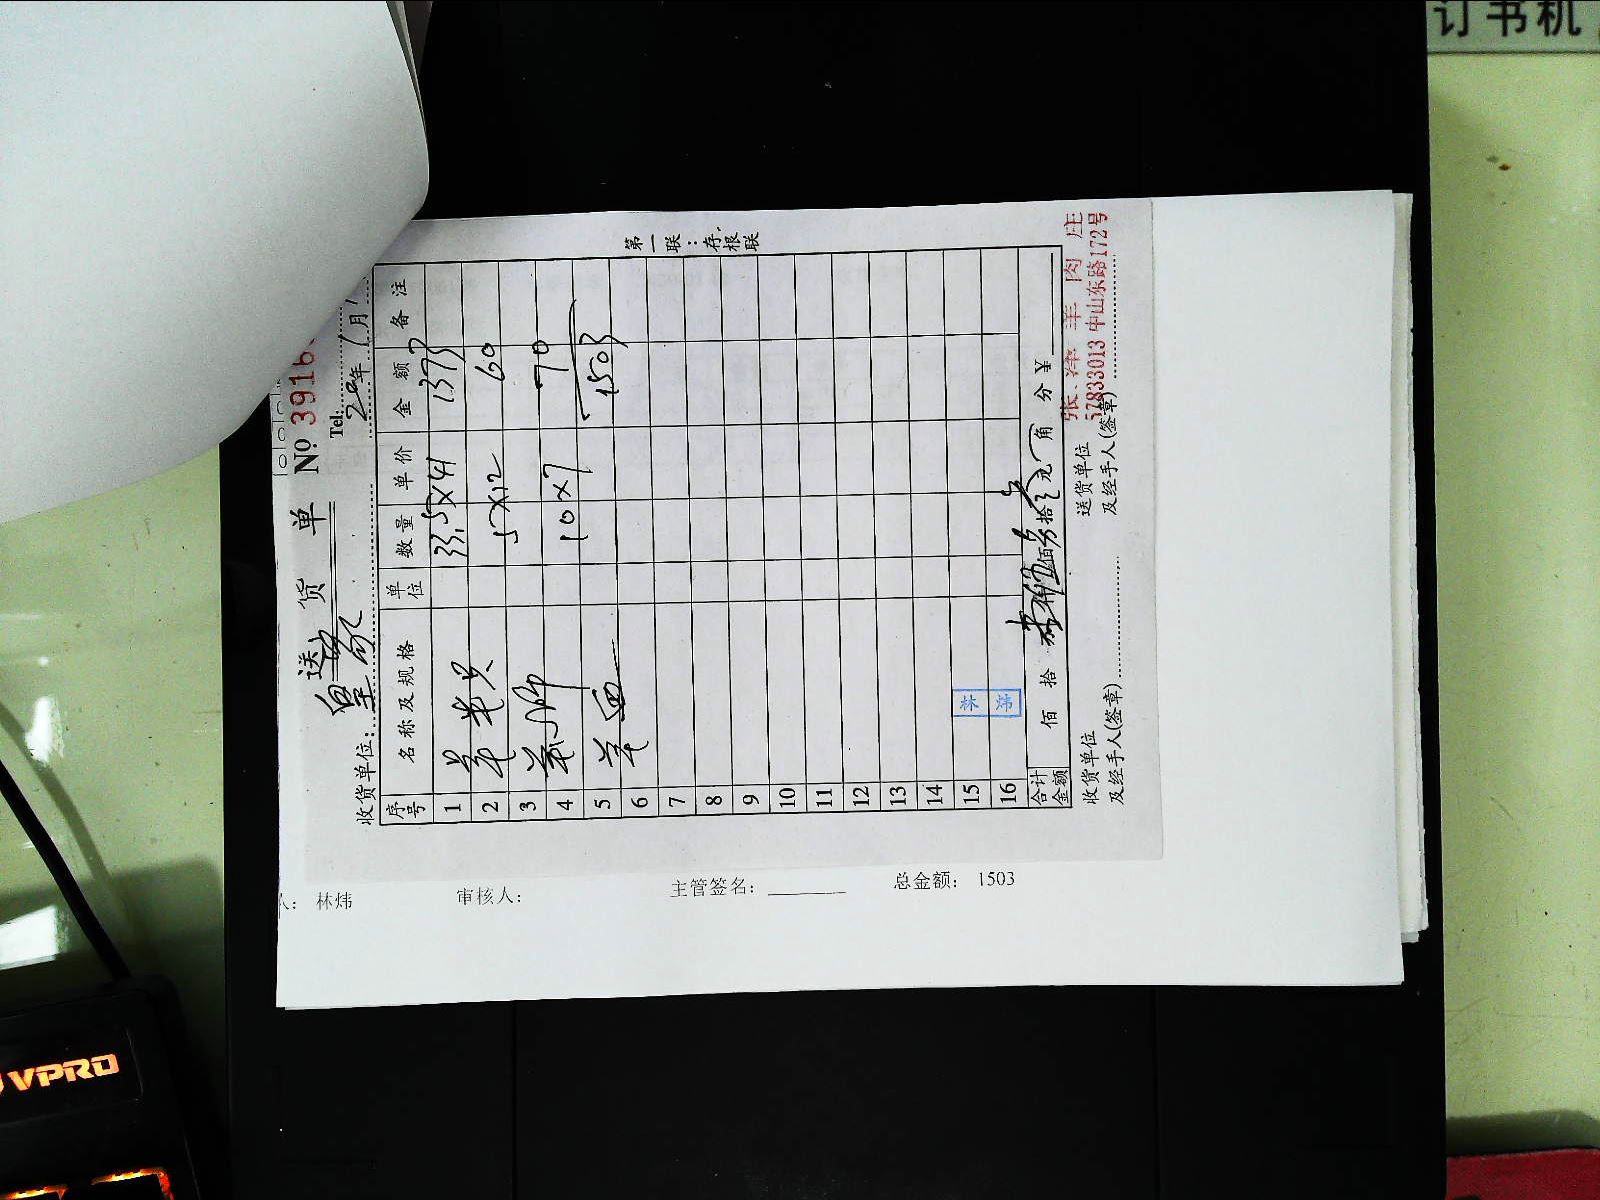 订书机
送货单
№ 3916
Tel.
年 1月
收货单位:
序号 名称及规格 单位 数量 单价 金额 备注
1 33.5×41 1373
2 5×12 60
3
4 10×7 70
5 羊血 1503
6
7
8
9
10
11
12
13
14
15
16
林炜
合计金额 佰 拾 仟伍佰 拾 元 角 分 ¥
第一联:存根联
收货单位及经手人(签章)
送货单位及经手人(签章)
张泽羊肉庄
57833013 中山东路172号
人: 林炜 审核人: 主管签名: 总金额: 1503
VPRO